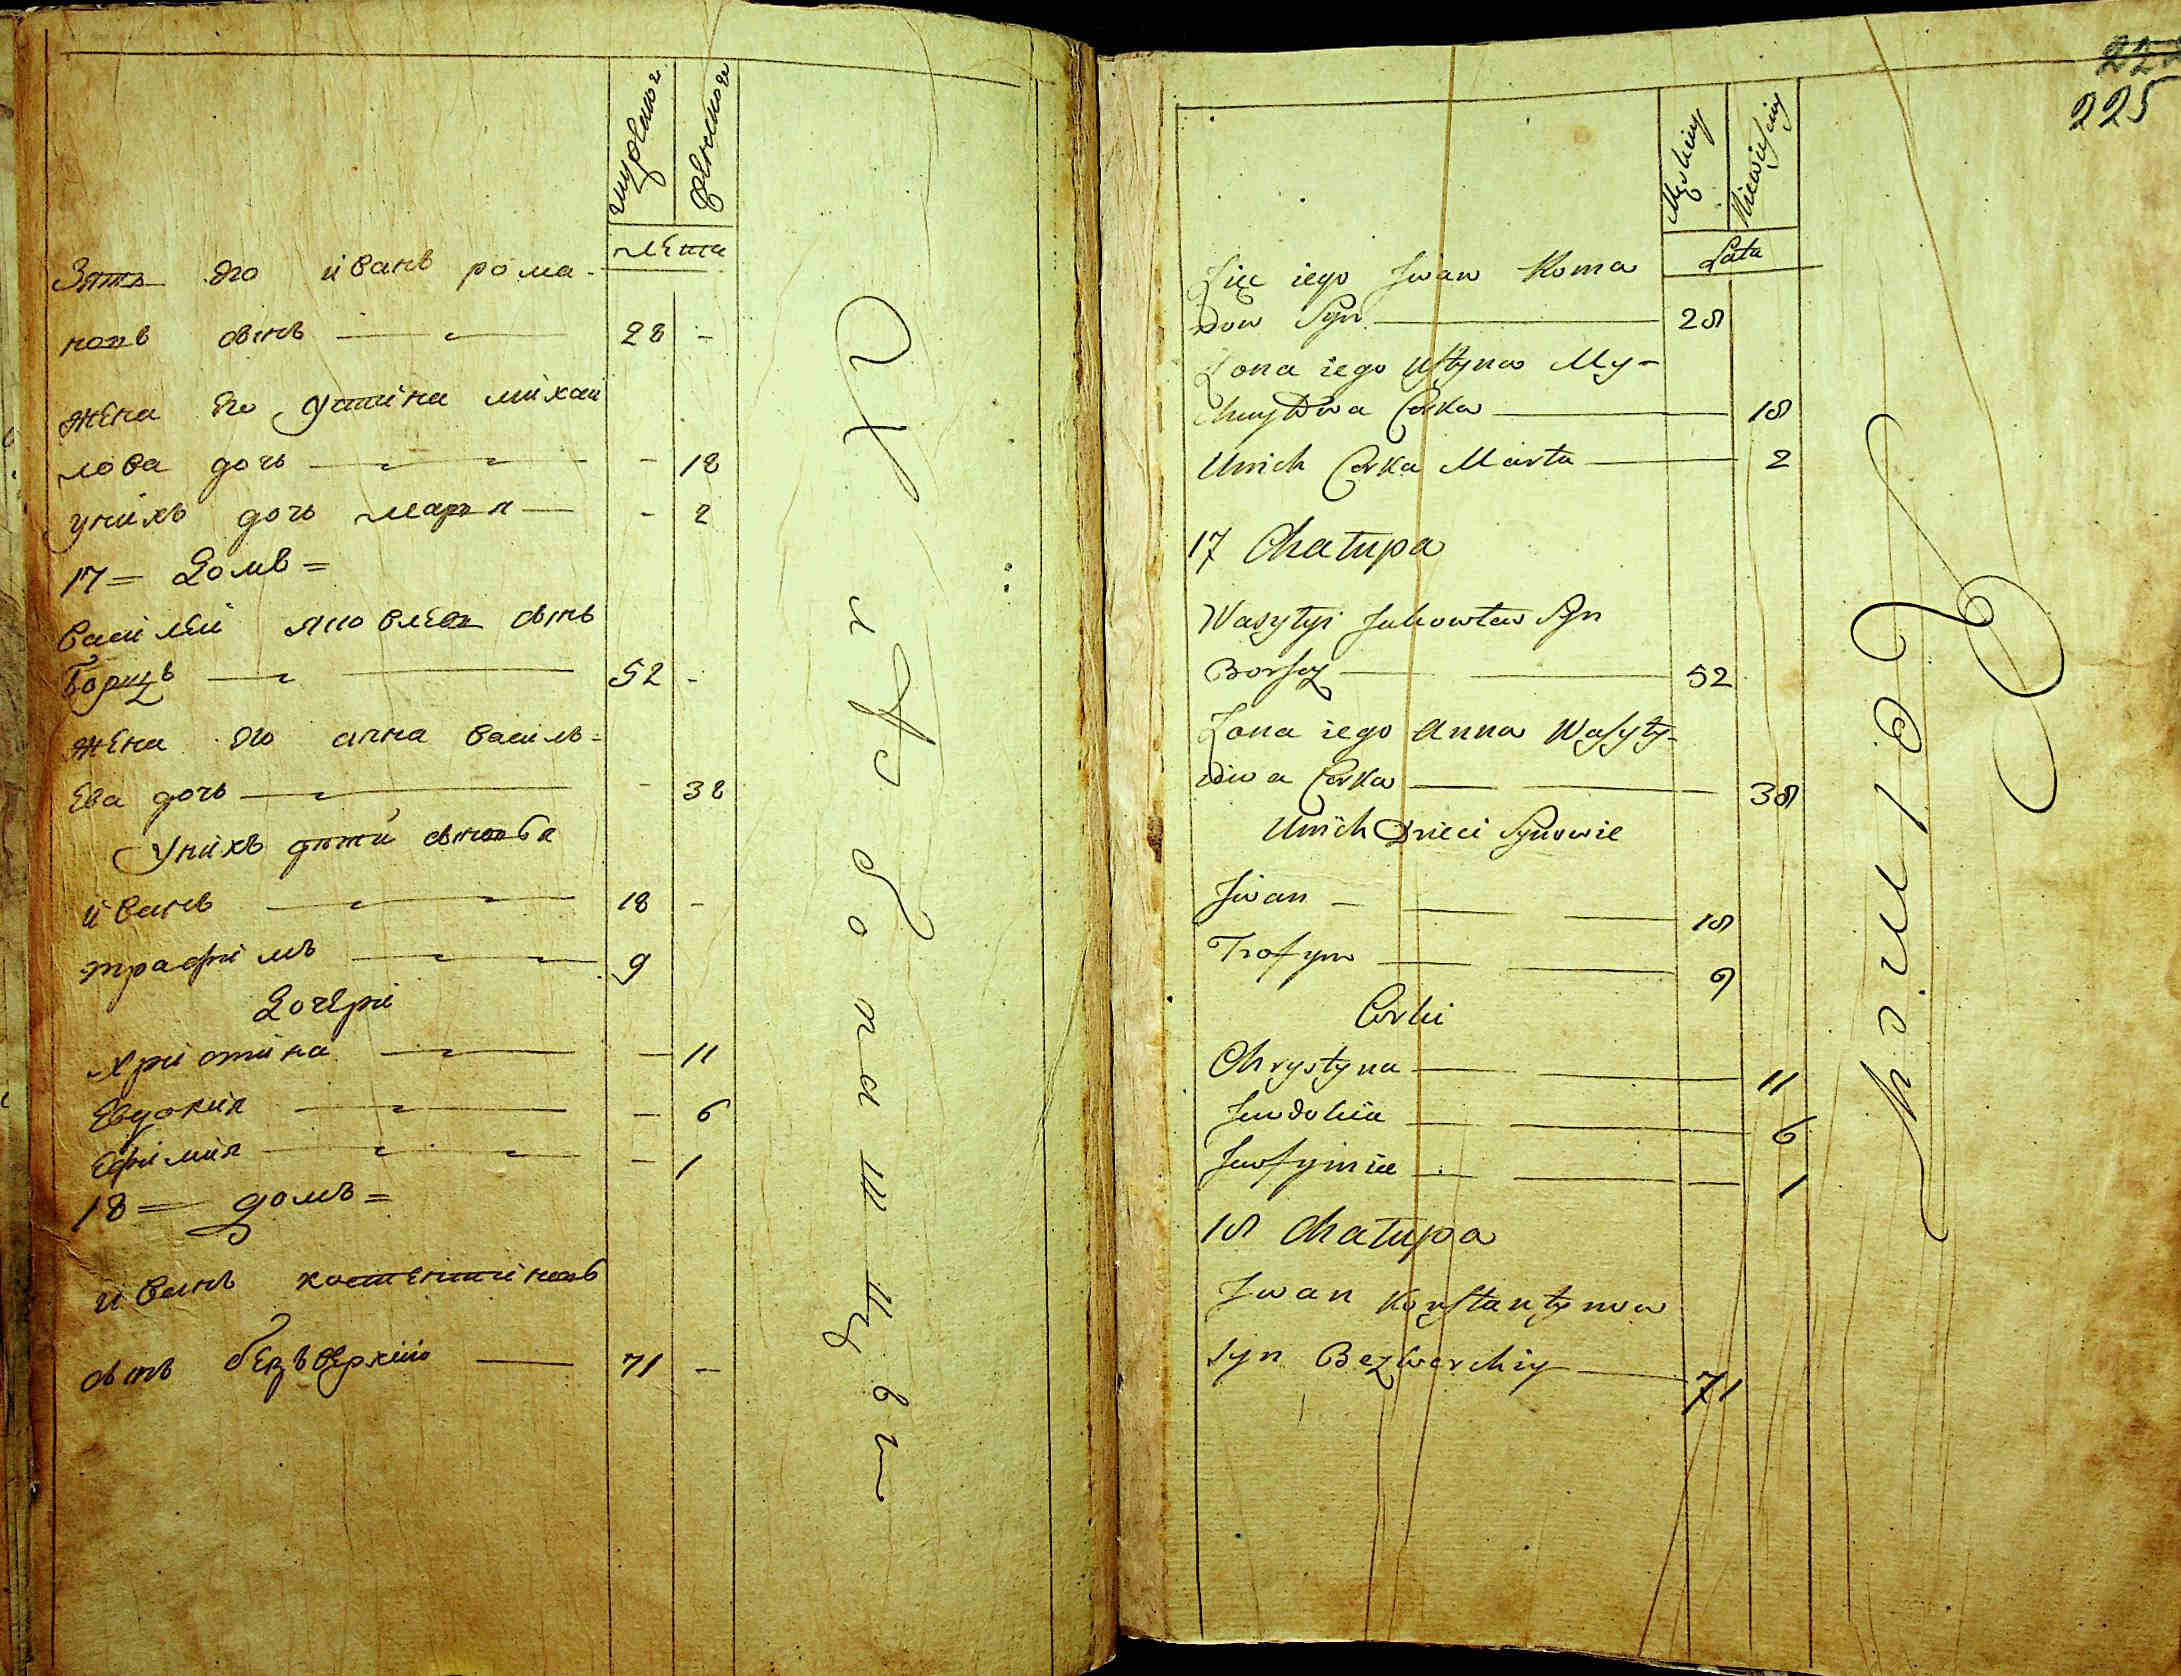 мужеска женска
лета
Зять его иванъ рома-
новъ сынъ 28 -
жена его устина михаи
лова дочь - 18
унихъ дочь марѳа - 2
17 = Домъ =
василеи яковлевъ сынъ
Борщъ 52 -
жена его анна василь-
ева дочь - 38
Унихъ дѣти сыновья
иванъ 18 -
трафимъ 9
Дочери
христина - 11
Евдокия - 6
Ефимия - 1
18 = домъ =
иванъ костентиновъ
сынъ безъверхий 71 -
225
Męskiey Niewieściey
Lata
Zięć iego Iwan Roma
now Syn 28
Zona iego Ustyna My-
chayłowa Corka 18
Unich Corka Marta 2
17 Chałupa
Wasyłyi Jakowlew Syn
Borszcz 52
Zona iego Anna Wasyły-
iowa Corka 38
Unich Dzieci Synowie
Iwan 18
Trofym 9
Corki
Chrystyna 11
Jewdokia 6
Jewfymia 1
18 Chałupa
Iwan Konstantynow
Syn Bezwerchiy 71